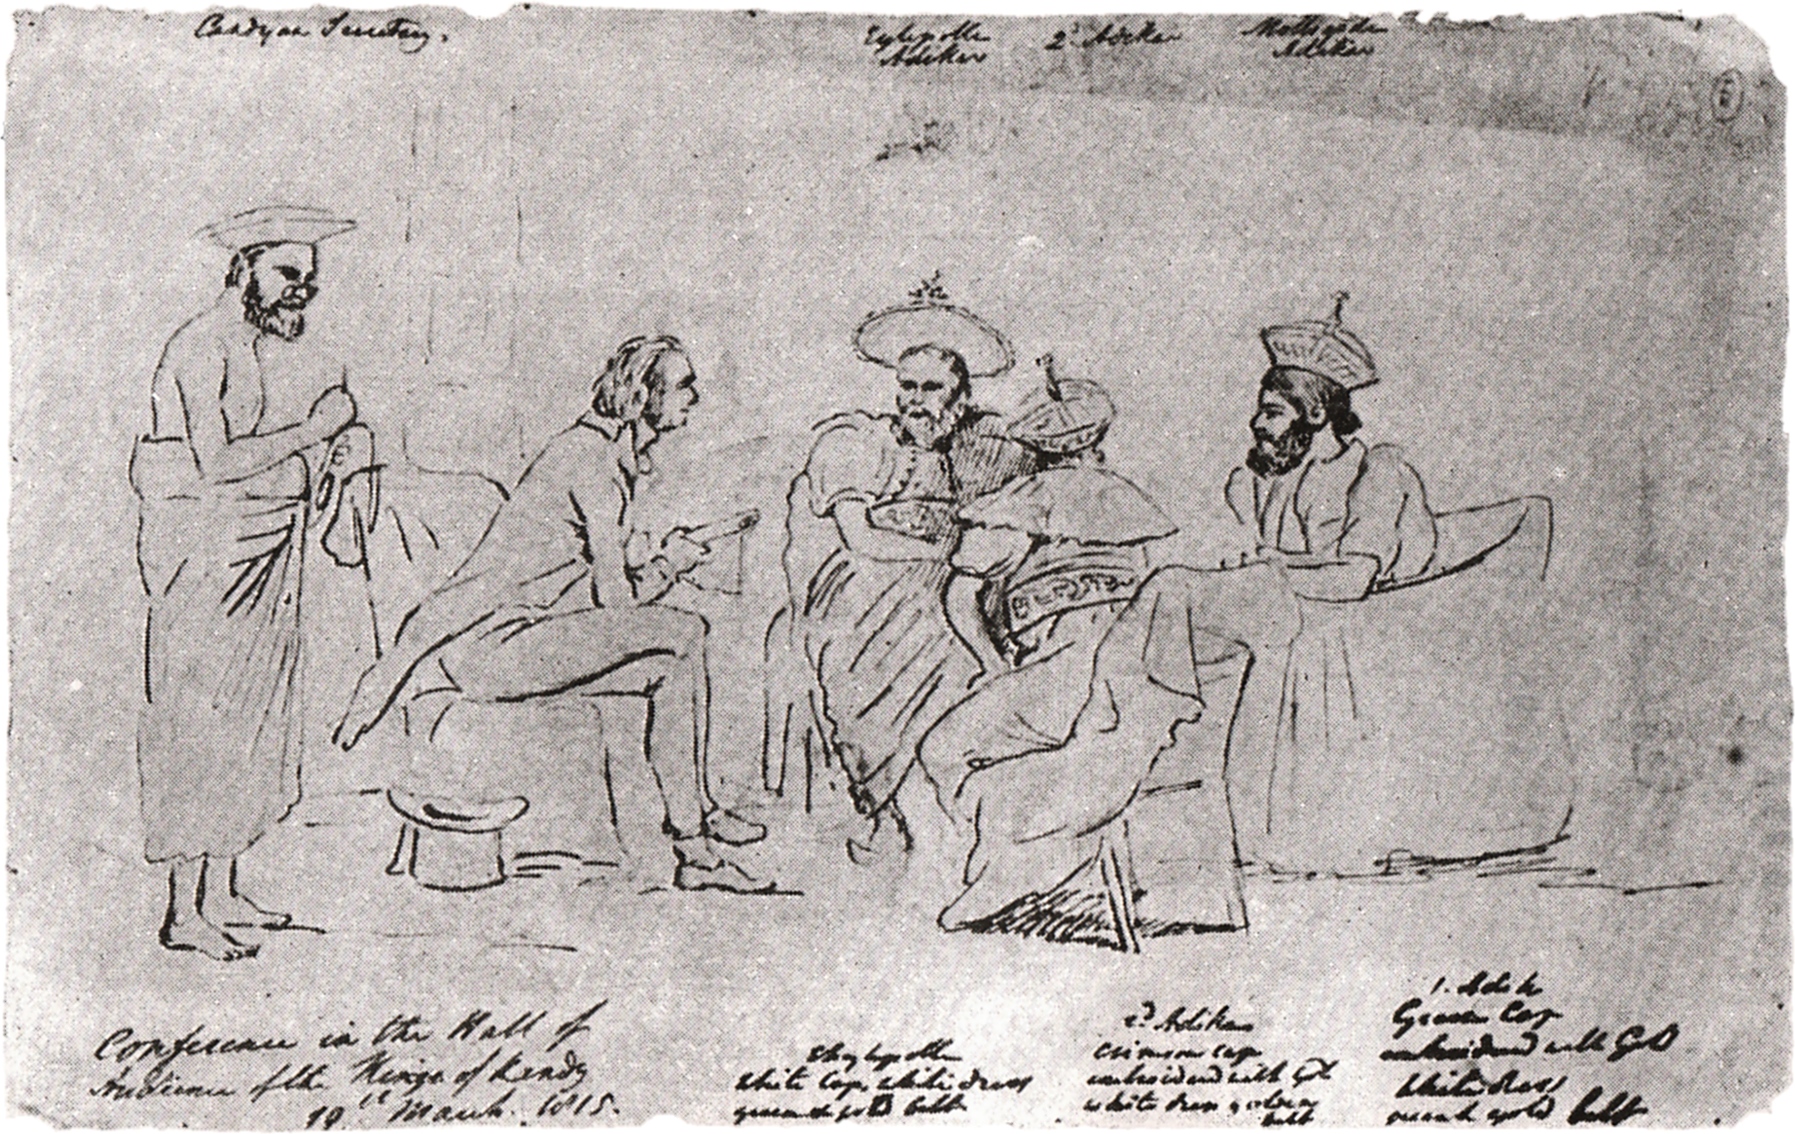 Candyan Secretary.
Eylepolle
Adikar
2d Adikar
Mollegodde
Adikar
Conference in the Hall of
Audience of the Kings of Kandy
March. 1815.
white Cap, white dress
green & gold belt
2d Adikar
Crimson cap
embroidered with Gold
white dress
belt
1. Adik
Green Cap
embroidered with Gold
White dress
green & gold belt